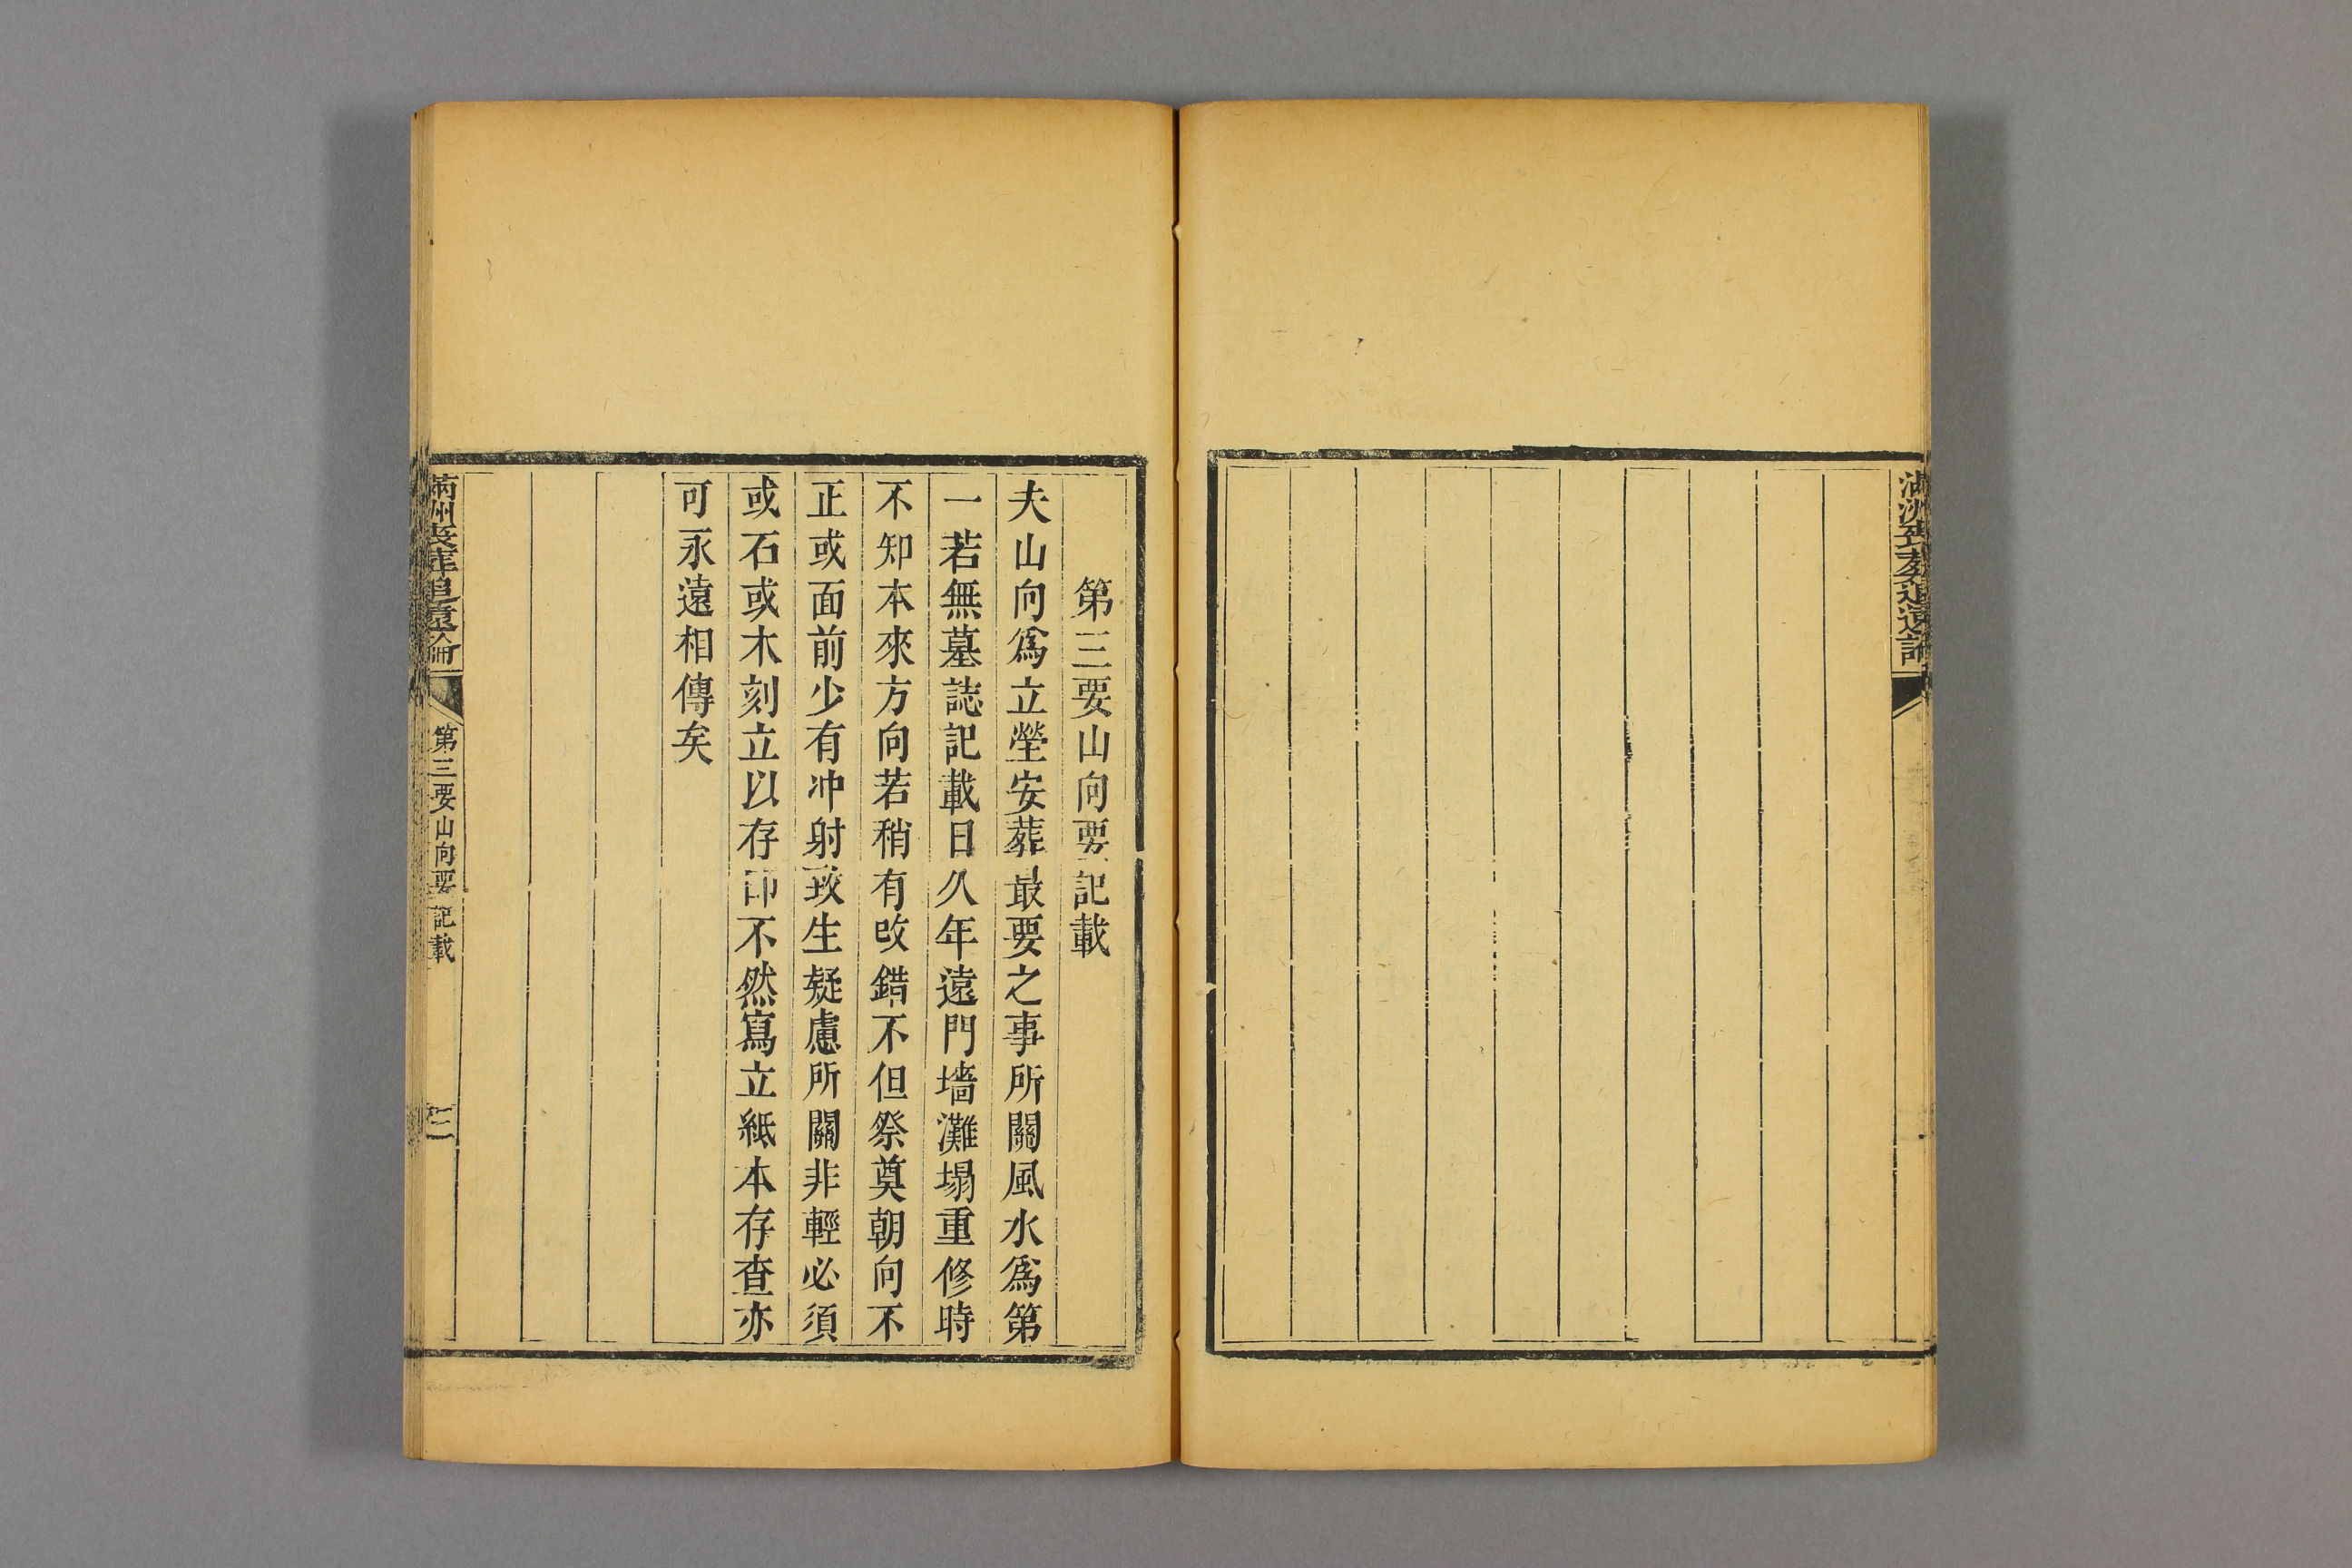 滿洲喪葬追遠論
第三要山向要記載
夫山向爲立塋安葬最要之事所關風水爲第
一若無墓誌記載日久年遠門墻灘塌重修時
不知本來方向若稍有改錯不但祭奠朝向不
正或面前少有冲射致生疑慮所關非輕必須
或石或木刻立以存印不然寫立紙本存查亦
可永遠相傳矣
滿洲喪葬追遠論
第三要山向要記載